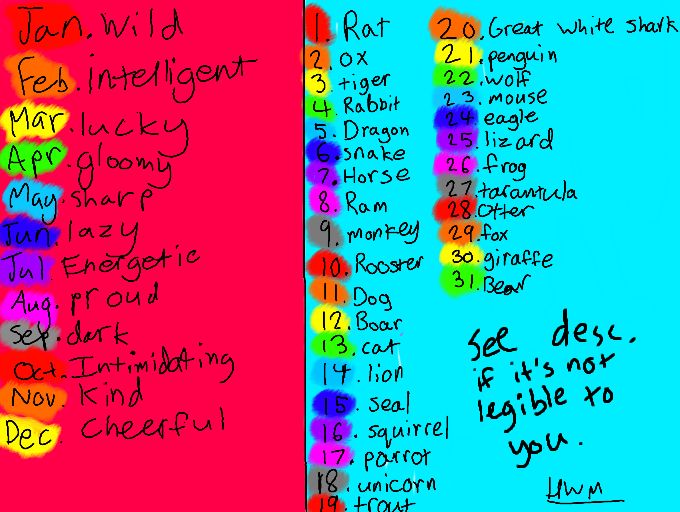 Jan. Wild
Feb. intelligent
Mar. lucky
Apr. gloomy
May. sharp
Jun. lazy
Jul Energetic
Aug. proud
Sep. dark
Oct. Intimidating
Nov. Kind
Dec. Cheerful
1. Rat
2. ox
3 tiger
4. Rabbit
5. Dragon
6. snake
7. Horse
8. Ram
9. monkey
10. Rooster
11. Dog
12. Boar
13. cat
14. lion
15. seal
16. squirrel
17. parrot
18. unicorn
19. trout
20. Great white shark
21. penguin
22. wolf
23. mouse
24. eagle
25. lizard
26. frog
27. tarantula
28. Otter
29. fox
30. giraffe
31. Bear
see desc.
if it's not
legible to
you.
HWM